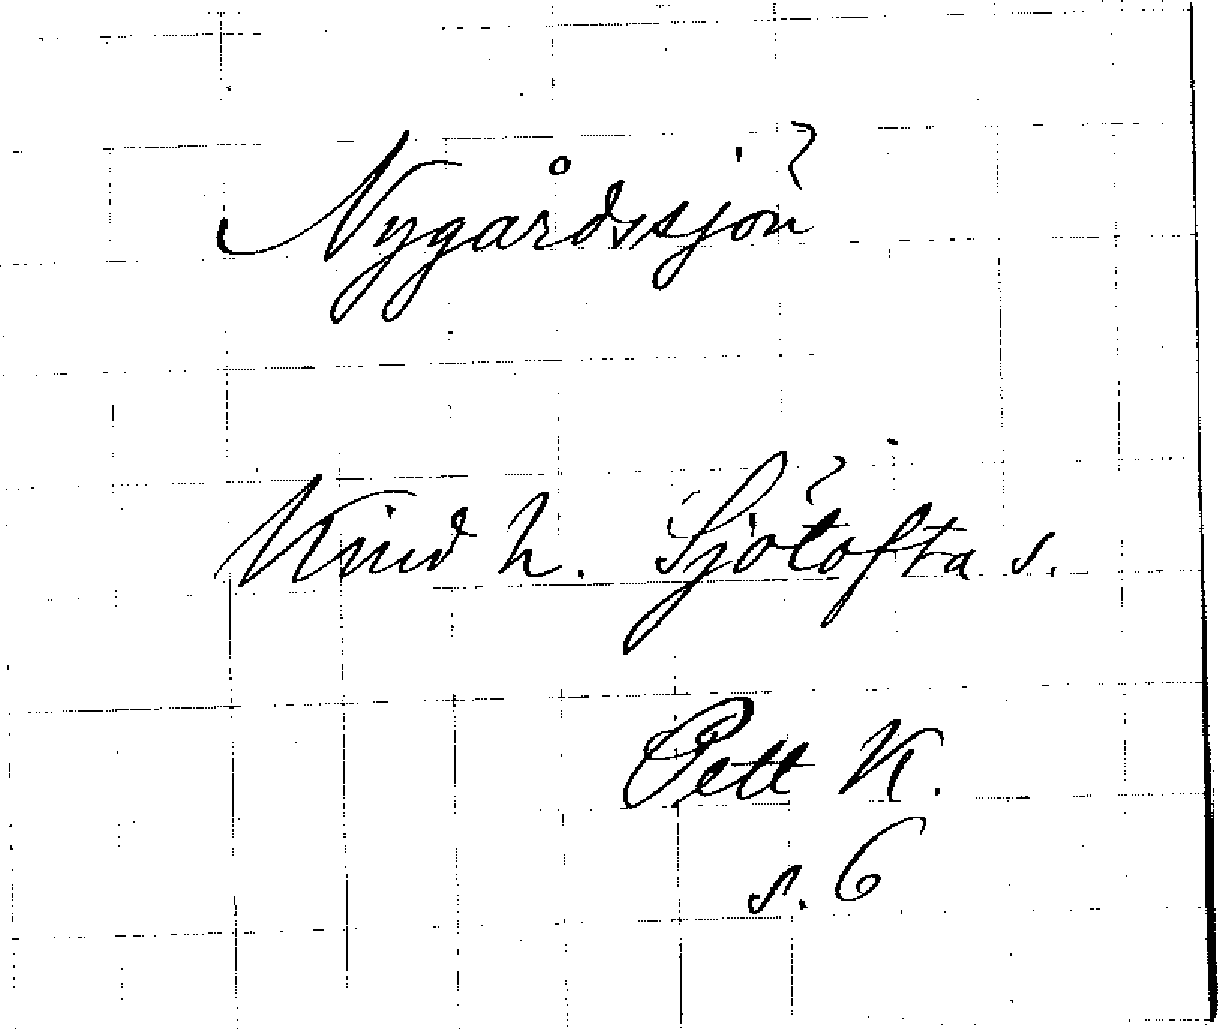 Nygårdssjön
Kind h. Sjötofta s.
Pett K.
s. 6